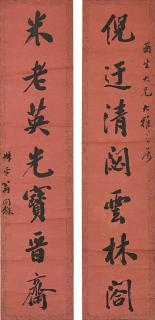 酉生大兄大雅之屬
倪迂清閟雲林閣
米老英光寶晉齋
叔平翁同龢